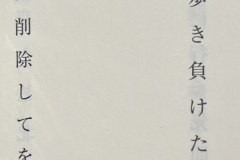 き負けた
削除してを